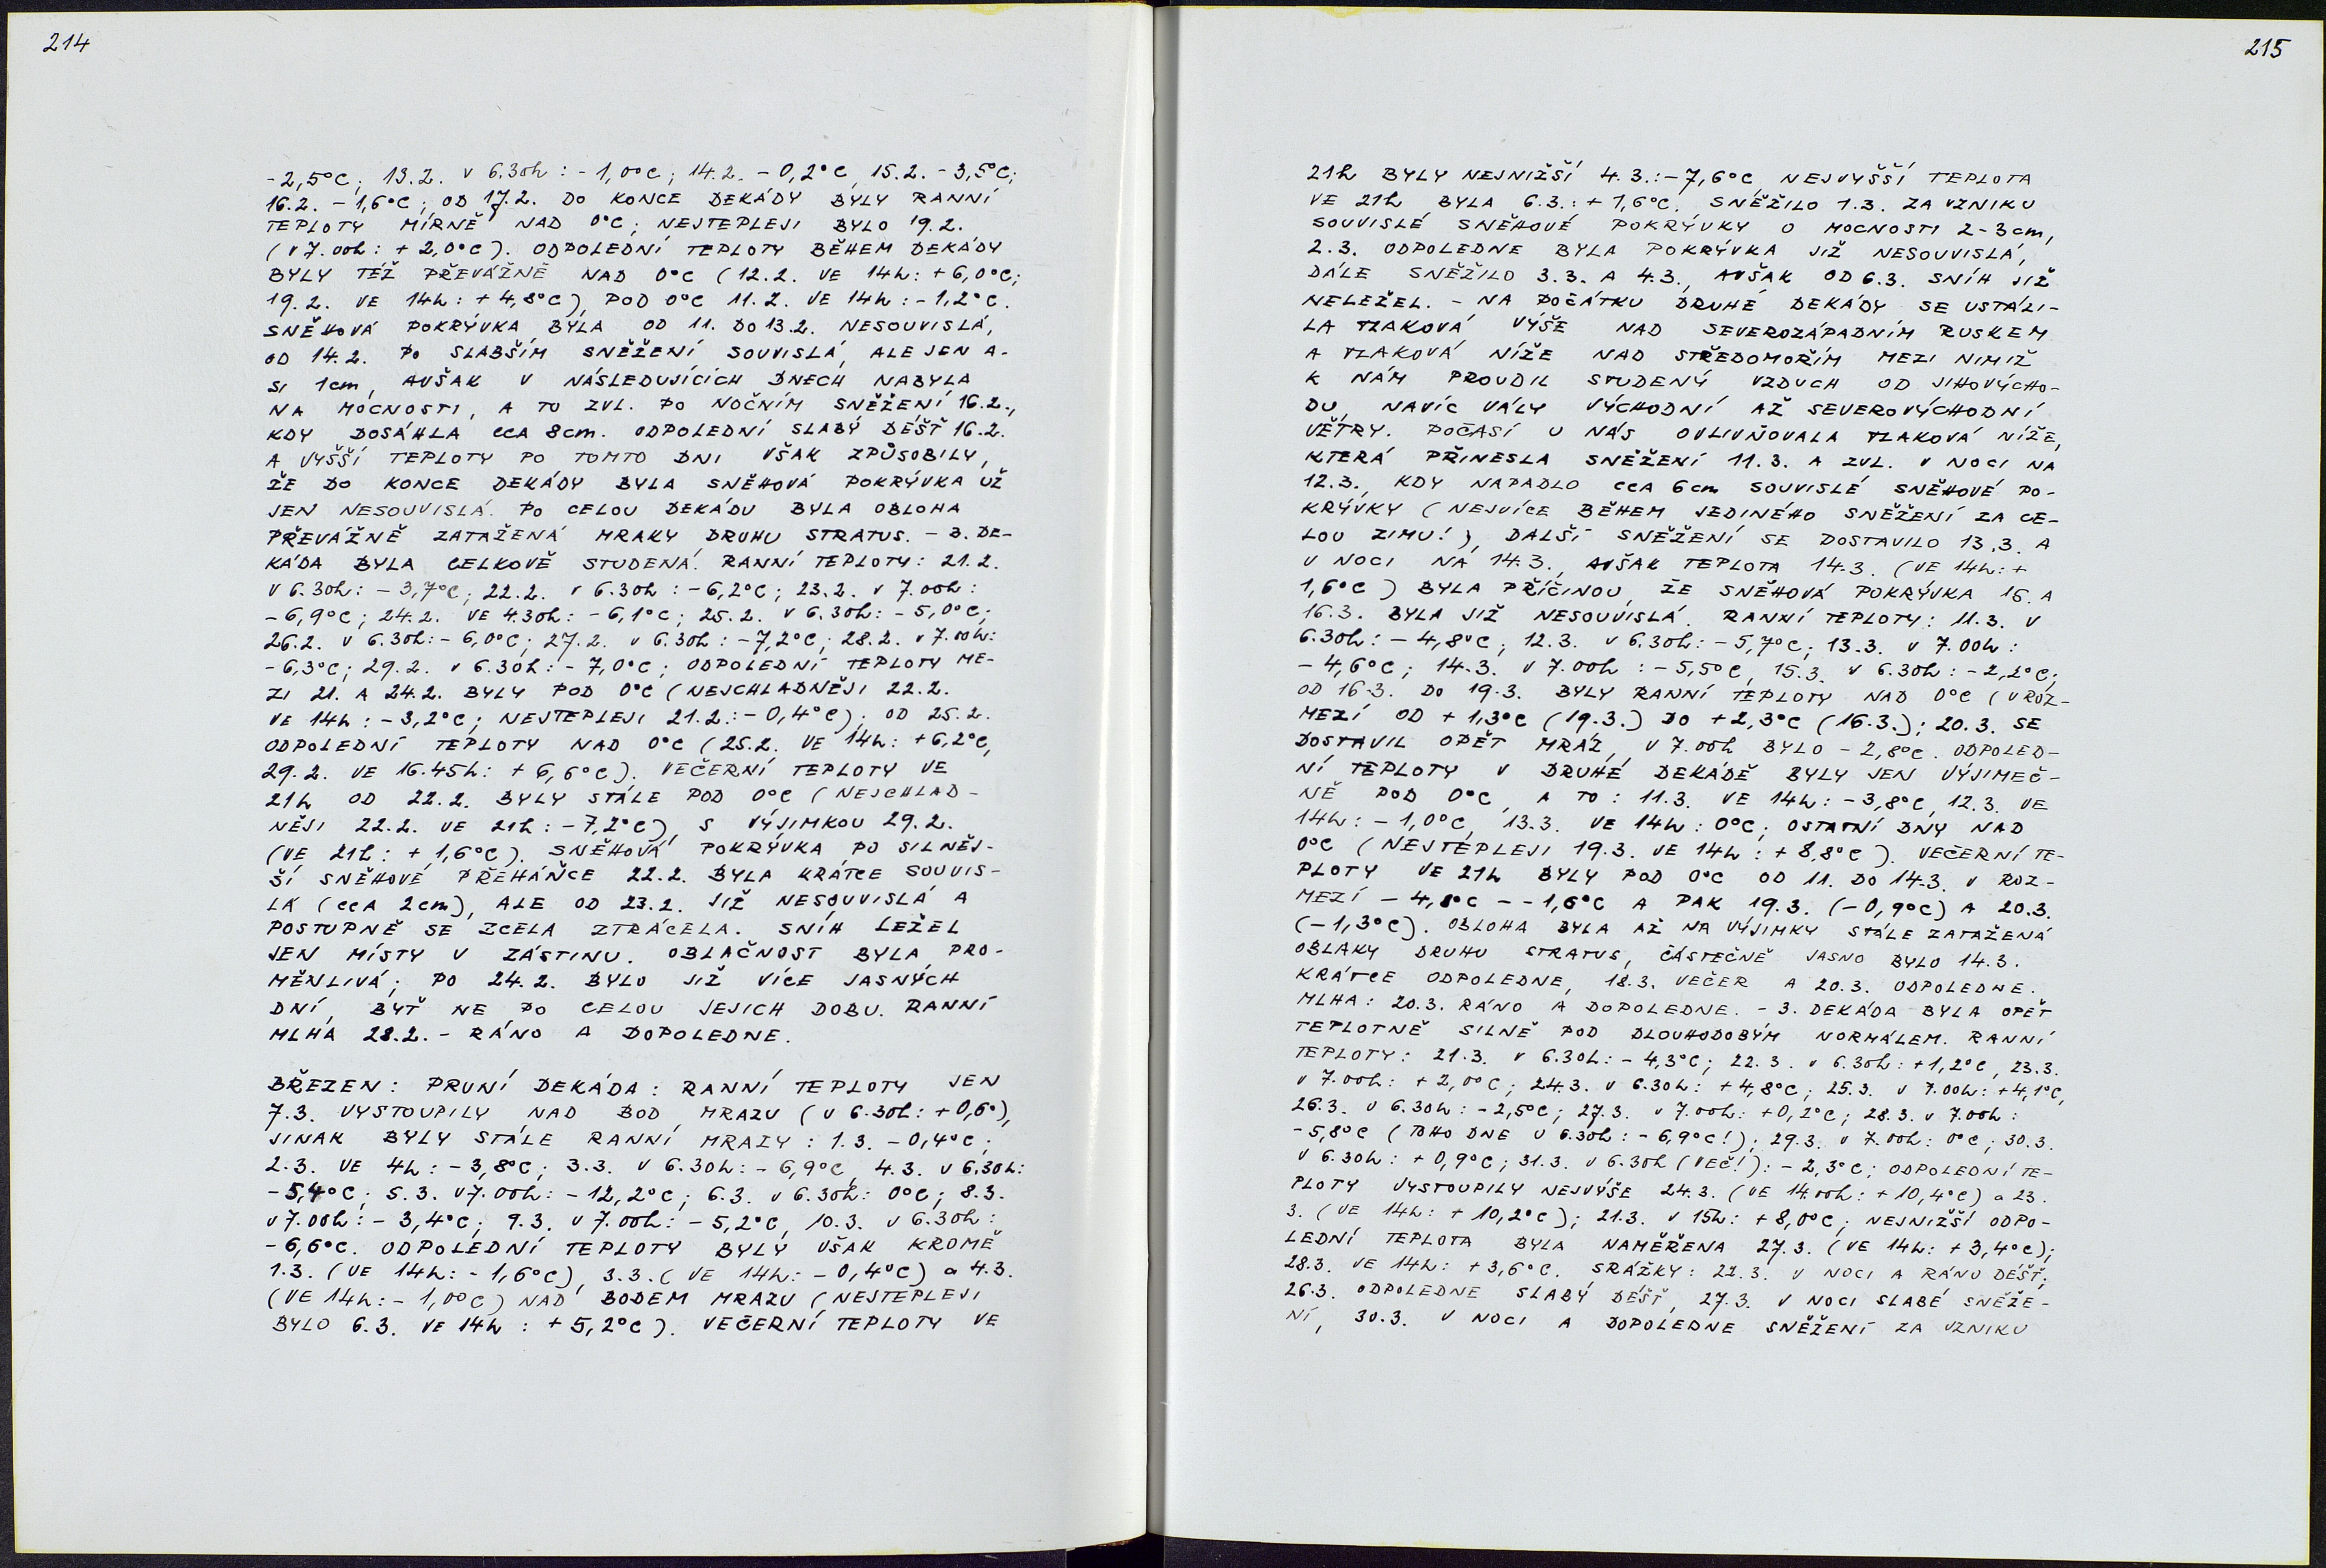 214
-2,5°C; 13.2. V 6.30h: -1,0°C; 14.2. -0,2°C, 15.2. -3,5°C;
16.2. -1,6°C; OD 17.2. DO KONCE DEKÁDY BYLY RANNÍ
TEPLOTY MÍRNĚ NAD 0°C; NEJTEPLEJI BYLO 19.2.
(V 7.00h: +2,0°C). ODPOLEDNÍ TEPLOTY BĚHEM DEKÁDY
BYLY TÉŽ PŘEVÁŽNĚ NAD 0°C (12.2. VE 14h: +6,0°C;
19.2. VE 14h: +4,8°C), POD 0°C 11.2. VE 14h: -1,2°C.
SNĚHOVÁ POKRÝVKA BYLA OD 11. DO 13.2. NESOUVISLÁ,
OD 14.2. PO SLABŠÍM SNĚŽENÍ SOUVISLÁ, ALE JEN A-
SI 1cm, AVŠAK V NÁSLEDUJÍCÍCH DNECH NABYLA
NA MOCNOSTI, A TO ZVL. PO NOČNÍM SNĚŽENÍ 16.2.,
KDY DOSÁHLA CCA 8cm. ODPOLEDNÍ SLABÝ DÉŠŤ 16.2.
A VYŠŠÍ TEPLOTY PO TOMTO DNI VŠAK ZPŮSOBILY,
ŽE DO KONCE DEKÁDY BYLA SNĚHOVÁ POKRÝVKA UŽ
JEN NESOUVISLÁ. PO CELOU DEKÁDU BYLA OBLOHA
PŘEVÁŽNĚ ZATAŽENÁ MRAKY DRUHU STRATUS. - 3. DE-
KÁDA BYLA CELKOVĚ STUDENÁ. RANNÍ TEPLOTY: 21.2.
V 6.30h: -3,7°C; 22.2. V 6.30h: -6,2°C; 23.2. V 7.00h:
-6,9°C; 24.2. VE 4.30h: -6,1°C; 25.2. V 6.30h: -5,0°C;
26.2. V 6.30h: -6,0°C; 27.2. V 6.30h: -7,2°C; 28.2. V 7.00h:
-6,3°C; 29.2. V 6.30h: -7,0°C; ODPOLEDNÍ TEPLOTY ME-
ZI 21. A 24.2. BYLY POD 0°C (NEJCHLADNĚJI 22.2.
VE 14h: -3,2°C; NEJTEPLEJI 21.2.: -0,4°C); OD 25.2.
ODPOLEDNÍ TEPLOTY NAD 0°C (25.2. VE 14h: +6,2°C,
29.2. VE 16.45h: +6,6°C). VEČERNÍ TEPLOTY VE
21h OD 22.2. BYLY STÁLE POD 0°C (NEJCHLAD-
NĚJI 22.2. VE 21h: -7,2°C), S VÝJIMKOU 29.2.
(VE 21h: +1,6°C). SNĚHOVÁ POKRÝVKA PO SILNĚJ-
ŠÍ SNĚHOVÉ PŘEHÁŇCE 22.2. BYLA KRÁTCE SOUVIS-
LÁ (CCA 2cm), ALE OD 23.2. JIŽ NESOUVISLÁ A
POSTUPNĚ SE ZCELA ZTRÁCELA. SNÍH LEŽEL
JEN MÍSTY V ZÁSTINU. OBLAČNOST BYLA PRO-
MĚNLIVÁ; PO 24.2. BYLO JIŽ VÍCE JASNÝCH
DNÍ, BYŤ NE PO CELOU JEJICH DOBU. RANNÍ
MLHA 28.2. - RÁNO A DOPOLEDNE.
BŘEZEN: PRVNÍ DEKÁDA: RANNÍ TEPLOTY JEN
7.3. VYSTOUPILY NAD BOD MRAZU (V 6.30h: +0,6°),
JINAK BYLY STÁLE RANNÍ MRAZY: 1.3. -0,4°C;
2.3. VE 4h: -3,8°C; 3.3. V 6.30h: -6,9°C, 4.3. V 6.30h:
-5,4°C; 5.3. V 7.00h: -12,2°C; 6.3. V 6.30h: 0°C; 8.3.
V 7.00h: -3,4°C; 9.3. V 7.00h: -5,2°C, 10.3. V 6.30h:
-6,6°C. ODPOLEDNÍ TEPLOTY BYLY VŠAK KROMĚ
1.3. (VE 14h: -1,6°C), 3.3. (VE 14h: -0,4°C) a 4.3.
(VE 14h: -1,0°C) NAD BODEM MRAZU (NEJTEPLEJI
BYLO 6.3. VE 14h: +5,2°C). VEČERNÍ TEPLOTY VE
215
21h BYLY NEJNIŽŠÍ 4.3.: -7,6°C, NEJVYŠŠÍ TEPLOTA
VE 21h BYLA 6.3.: +1,6°C. SNĚŽILO 1.3. ZA VZNIKU
SOUVISLÉ SNĚHOVÉ POKRÝVKY O MOCNOSTI 2-3cm,
2.3. ODPOLEDNE BYLA POKRÝVKA JIŽ NESOUVISLÁ,
DÁLE SNĚŽILO 3.3. A 4.3., AVŠAK OD 6.3. SNÍH JIŽ
NELEŽEL. - NA POČÁTKU DRUHÉ DEKÁDY SE USTÁLI-
LA TLAKOVÁ VÝŠE NAD SEVEROZÁPADNÍM RUSKEM
A TLAKOVÁ NÍŽE NAD STŘEDOMOŘÍM MEZI NIMIŽ
K NÁM PROUDIL STUDENÝ VZDUCH OD JIHOVÝCHO-
DU, NAVÍC VÁLY VÝCHODNÍ AŽ SEVEROVÝCHODNÍ
VĚTRY. POČASÍ U NÁS OVLIVŇOVALA TLAKOVÁ NÍŽE,
KTERÁ PŘINESLA SNĚŽENÍ 11.3. A ZVL. V NOCI NA
12.3., KDY NAPADLO CCA 6cm SOUVISLÉ SNĚHOVÉ PO-
KRÝVKY (NEJVÍCE BĚHEM JEDINÉHO SNĚŽENÍ ZA CE-
LOU ZIMU!), DALŠÍ SNĚŽENÍ SE DOSTAVILO 13.3. A
V NOCI NA 14.3., AVŠAK TEPLOTA 14.3. (VE 14h: +
1,6°C) BYLA PŘÍČINOU, ŽE SNĚHOVÁ POKRÝVKA 15. A
16.3. BYLA JIŽ NESOUVISLÁ. RANNÍ TEPLOTY: 11.3. V
6.30h: -4,8°C, 12.3. V 6.30h: -5,7°C; 13.3. V 7.00h:
-4,6°C; 14.3. V 7.00h: -5,5°C, 15.3. V 6.30h: -2,2°C;
OD 16.3. DO 19.3. BYLY RANNÍ TEPLOTY NAD 0°C (V ROZ-
MEZÍ OD +1,3°C (19.3.) DO +2,3°C (16.3.); 20.3. SE
DOSTAVIL OPĚT MRÁZ, V 7.00h BYLO -2,8°C. ODPOLED-
NÍ TEPLOTY V DRUHÉ DEKÁDĚ BYLY JEN VÝJIMEČ-
NĚ POD 0°C, A TO: 11.3. VE 14h: -3,8°C, 12.3. VE
14h: -1,0°C, 13.3. VE 14h: 0°C; OSTATNÍ DNY NAD
0°C (NEJTEPLEJI 19.3. VE 14h: +8,8°C). VEČERNÍ TE-
PLOTY VE 21h BYLY POD 0°C OD 11. DO 14.3. V ROZ-
MEZÍ -4,8°C - -1,6°C A PAK 19.3. (-0,9°C) A 20.3.
(-1,3°C). OBLOHA BYLA AŽ NA VÝJIMKY STÁLE ZATAŽENÁ
OBLAKY DRUHU STRATUS, ČÁSTEČNĚ JASNO BYLO 14.3.
KRÁTCE ODPOLEDNE, 18.3. VEČER A 20.3. ODPOLEDNE.
MLHA: 20.3. RÁNO A DOPOLEDNE. - 3. DEKÁDA BYLA OPĚT
TEPLOTNĚ SILNĚ POD DLOUHODOBÝM NORMÁLEM. RANNÍ
TEPLOTY: 21.3. V 6.30h: -4,3°C; 22.3. V 6.30h: +1,2°C, 23.3.
V 7.00h: +2,0°C; 24.3. V 6.30h: +4,8°C; 25.3. V 7.00h: +4,1°C,
26.3. V 6.30h: -2,5°C; 27.3. V 7.00h: +0,2°C; 28.3. V 7.00h:
-5,8°C (TOHO DNE V 6.30h: -6,9°C!); 29.3. V 7.00h: 0°C; 30.3.
V 6.30h: +0,9°C; 31.3. V 6.30h (VEČ!): -2,3°C; ODPOLEDNÍ TE-
PLOTY VYSTOUPILY NEJVÝŠE 24.3. (VE 14.00h: +10,4°C) a 23.
3. (VE 14h: +10,2°C); 21.3. V 15h: +8,0°C; NEJNIŽŠÍ ODPO-
LEDNÍ TEPLOTA BYLA NAMĚŘENA 27.3. (VE 14h: +3,4°C);
28.3. VE 14h: +3,6°C. SRÁŽKY: 22.3. V NOCI A RÁNO DÉŠŤ;
26.3. ODPOLEDNE SLABÝ DÉŠŤ, 27.3. V NOCI SLABÉ SNĚŽE-
NÍ, 30.3. V NOCI A DOPOLEDNE SNĚŽENÍ ZA VZNIKU